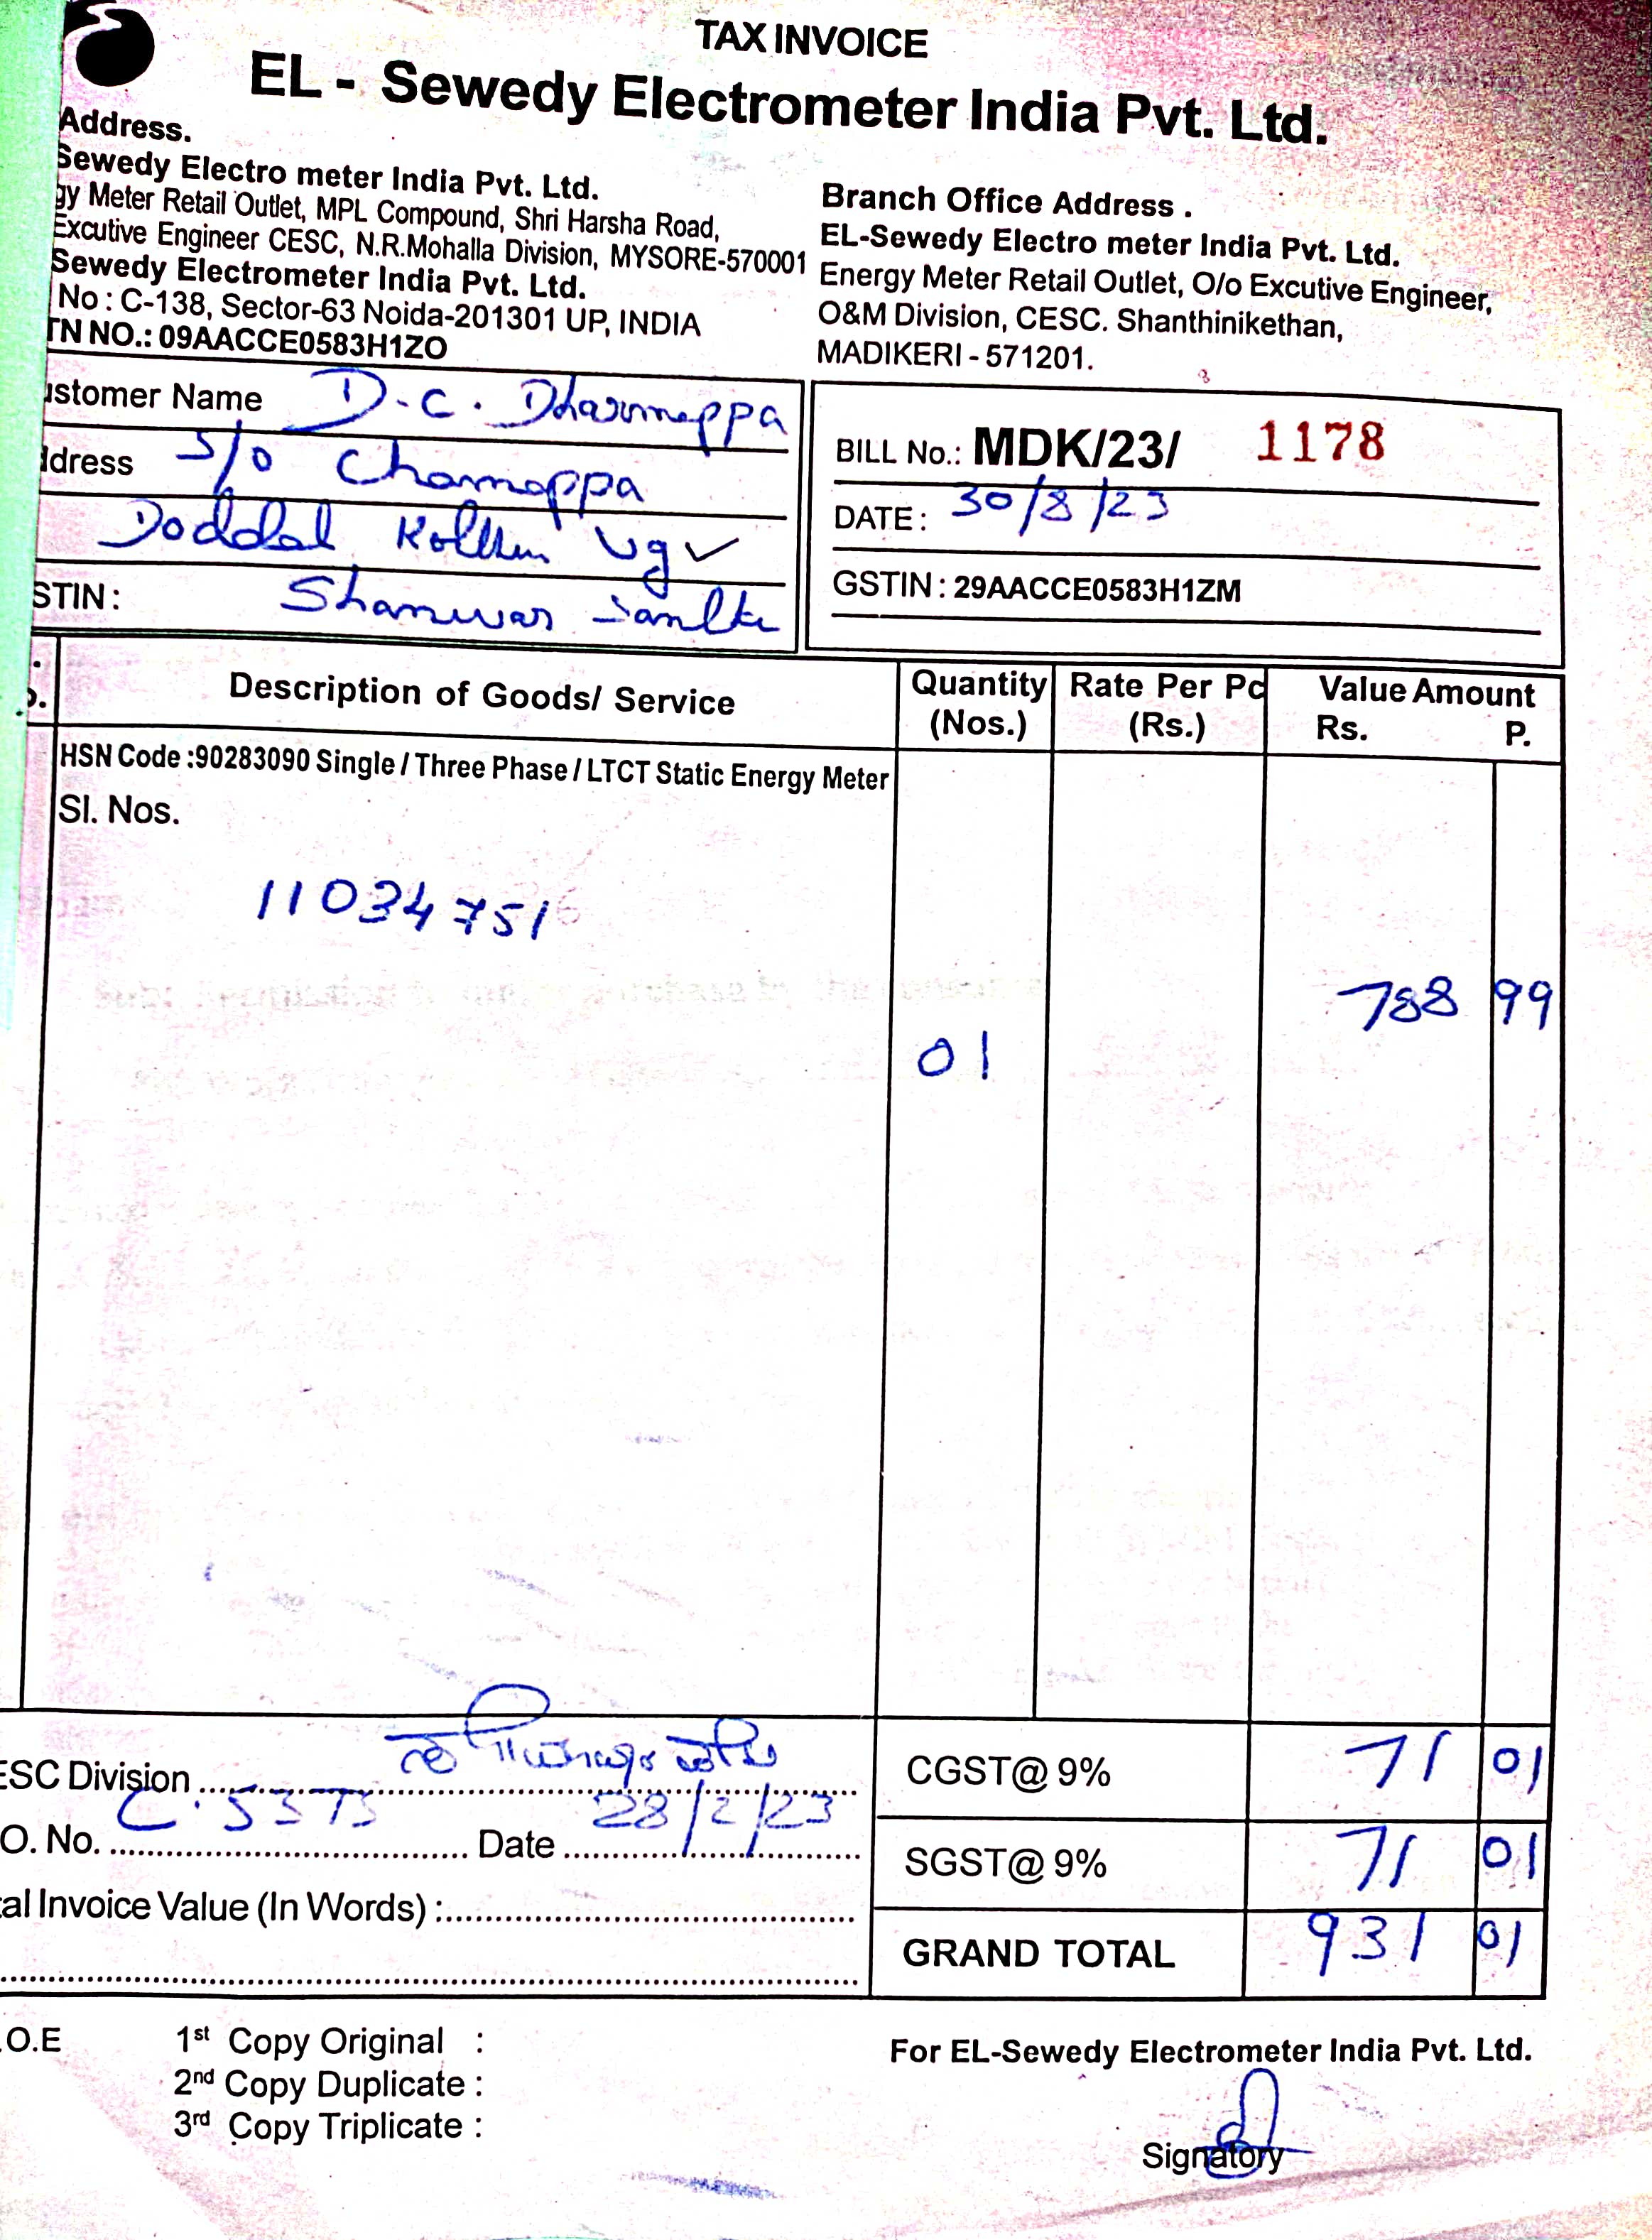 TAX INVOICE
EL - Sewedy Electrometer India Pvt. Ltd.
Address.
Sewedy Electro meter India Pvt. Ltd.
gy Meter Retail Outlet, MPL Compound, Shri Harsha Road,
Excutive Engineer CESC, N.R.Mohalla Division, MYSORE-570001
Sewedy Electrometer India Pvt. Ltd.
No : C-138, Sector-63 Noida-201301 UP, INDIA
TN NO.: 09AACCE0583H1ZO
Branch Office Address .
EL-Sewedy Electro meter India Pvt. Ltd.
Energy Meter Retail Outlet, O/o Excutive Engineer,
O&M Division, CESC. Shanthinikethan,
MADIKERI - 571201.
ustomer Name D.C. Dharmappa
ddress S/o Chamappa
Doddal
STIN : Shanwar
BILL No.: MDK/23/ 1178
DATE : 30/8/23
GSTIN : 29AACCE0583H1ZM
Description of Goods/ Service Quantity (Nos.) Rate Per Pc (Rs.) Value Amount Rs. P.
HSN Code :90283090 Single / Three Phase / LTCT Static Energy Meter
Sl. Nos.
11034751
788 99
01
ESC Division
O. No. Date 28/2/23
al Invoice Value (In Words) :
CGST@ 9% 71 01
SGST@ 9% 71 01
GRAND TOTAL 931 01
.O.E
1st Copy Original :
2nd Copy Duplicate :
3rd Copy Triplicate :
For EL-Sewedy Electrometer India Pvt. Ltd.
Signatory